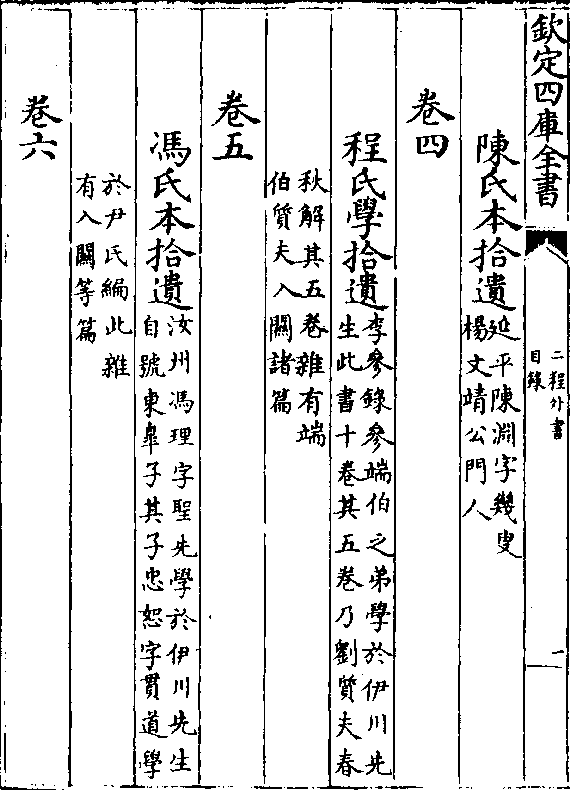 欽定四庫全書
二程外書
目錄
二
陳氏本拾遺
延平陳淵字幾叟
楊文靖公門人
卷四
程氏學拾遺
李參錄參端伯之弟學於伊川先
生此書十卷其五卷乃劉質夫春
秋解其五卷雜有端
伯質夫入關諸篇
卷五
馮氏本拾遺
汝州馮理字聖先學於伊川先生
自號東臯子其子忠恕字貫道學
於尹氏編此雜
有入關等篇
卷六